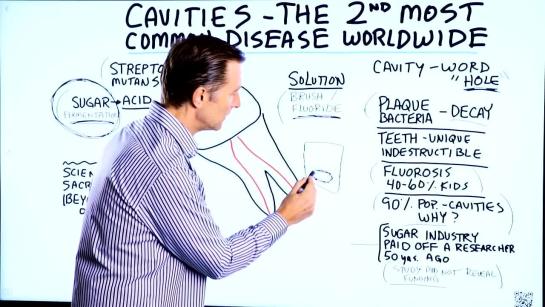 CAVITIES - THE 2ND MOST
COMMON DISEASE WORLDWIDE
STREPTO
MUTANS
SUGAR → ACID
FERMENTATION
SCIEN
SACR
(BEY
SOLUTION
BRUSH /
FLUORIDE
CAVITY - WORD
"HOLE"
PLAQUE
BACTERIA - DECAY
TEETH - UNIQUE
INDESTRUCTIBLE
FLUOROSIS
40-60% KIDS
90% POP. - CAVITIES
WHY?
SUGAR INDUSTRY
PAID OFF A RESEARCHER
50 yrs. AGO
(STUDY DID NOT REVEAL
FUNDING)